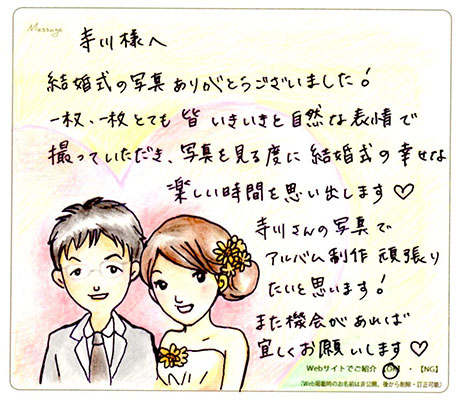 Message
寺川様へ
結婚式の写真ありがとうございました!
一枚、一枚とても皆いきいきと自然な表情で
撮っていただき、写真を見る度に結婚式の幸せな
楽しい時間を思い出します♡
寺川さんの写真で
アルバム制作頑張り
たいと思います!
また機会があれば
宜しくお願いします♡
Webサイトでご紹介 【OK】・【NG】
(Web掲載時のお名前は非公開。後から削除・訂正可能)